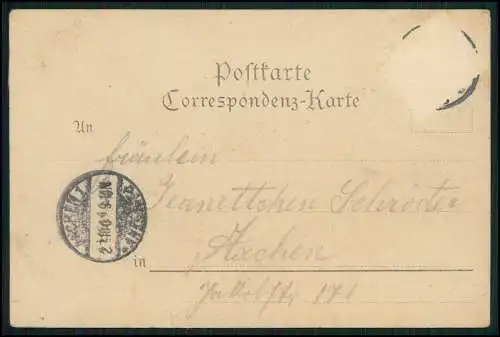 Postkarte
Correspondenz-Karte
An
Fräulein
Jeanettchen Schröder
Aachen
in
171